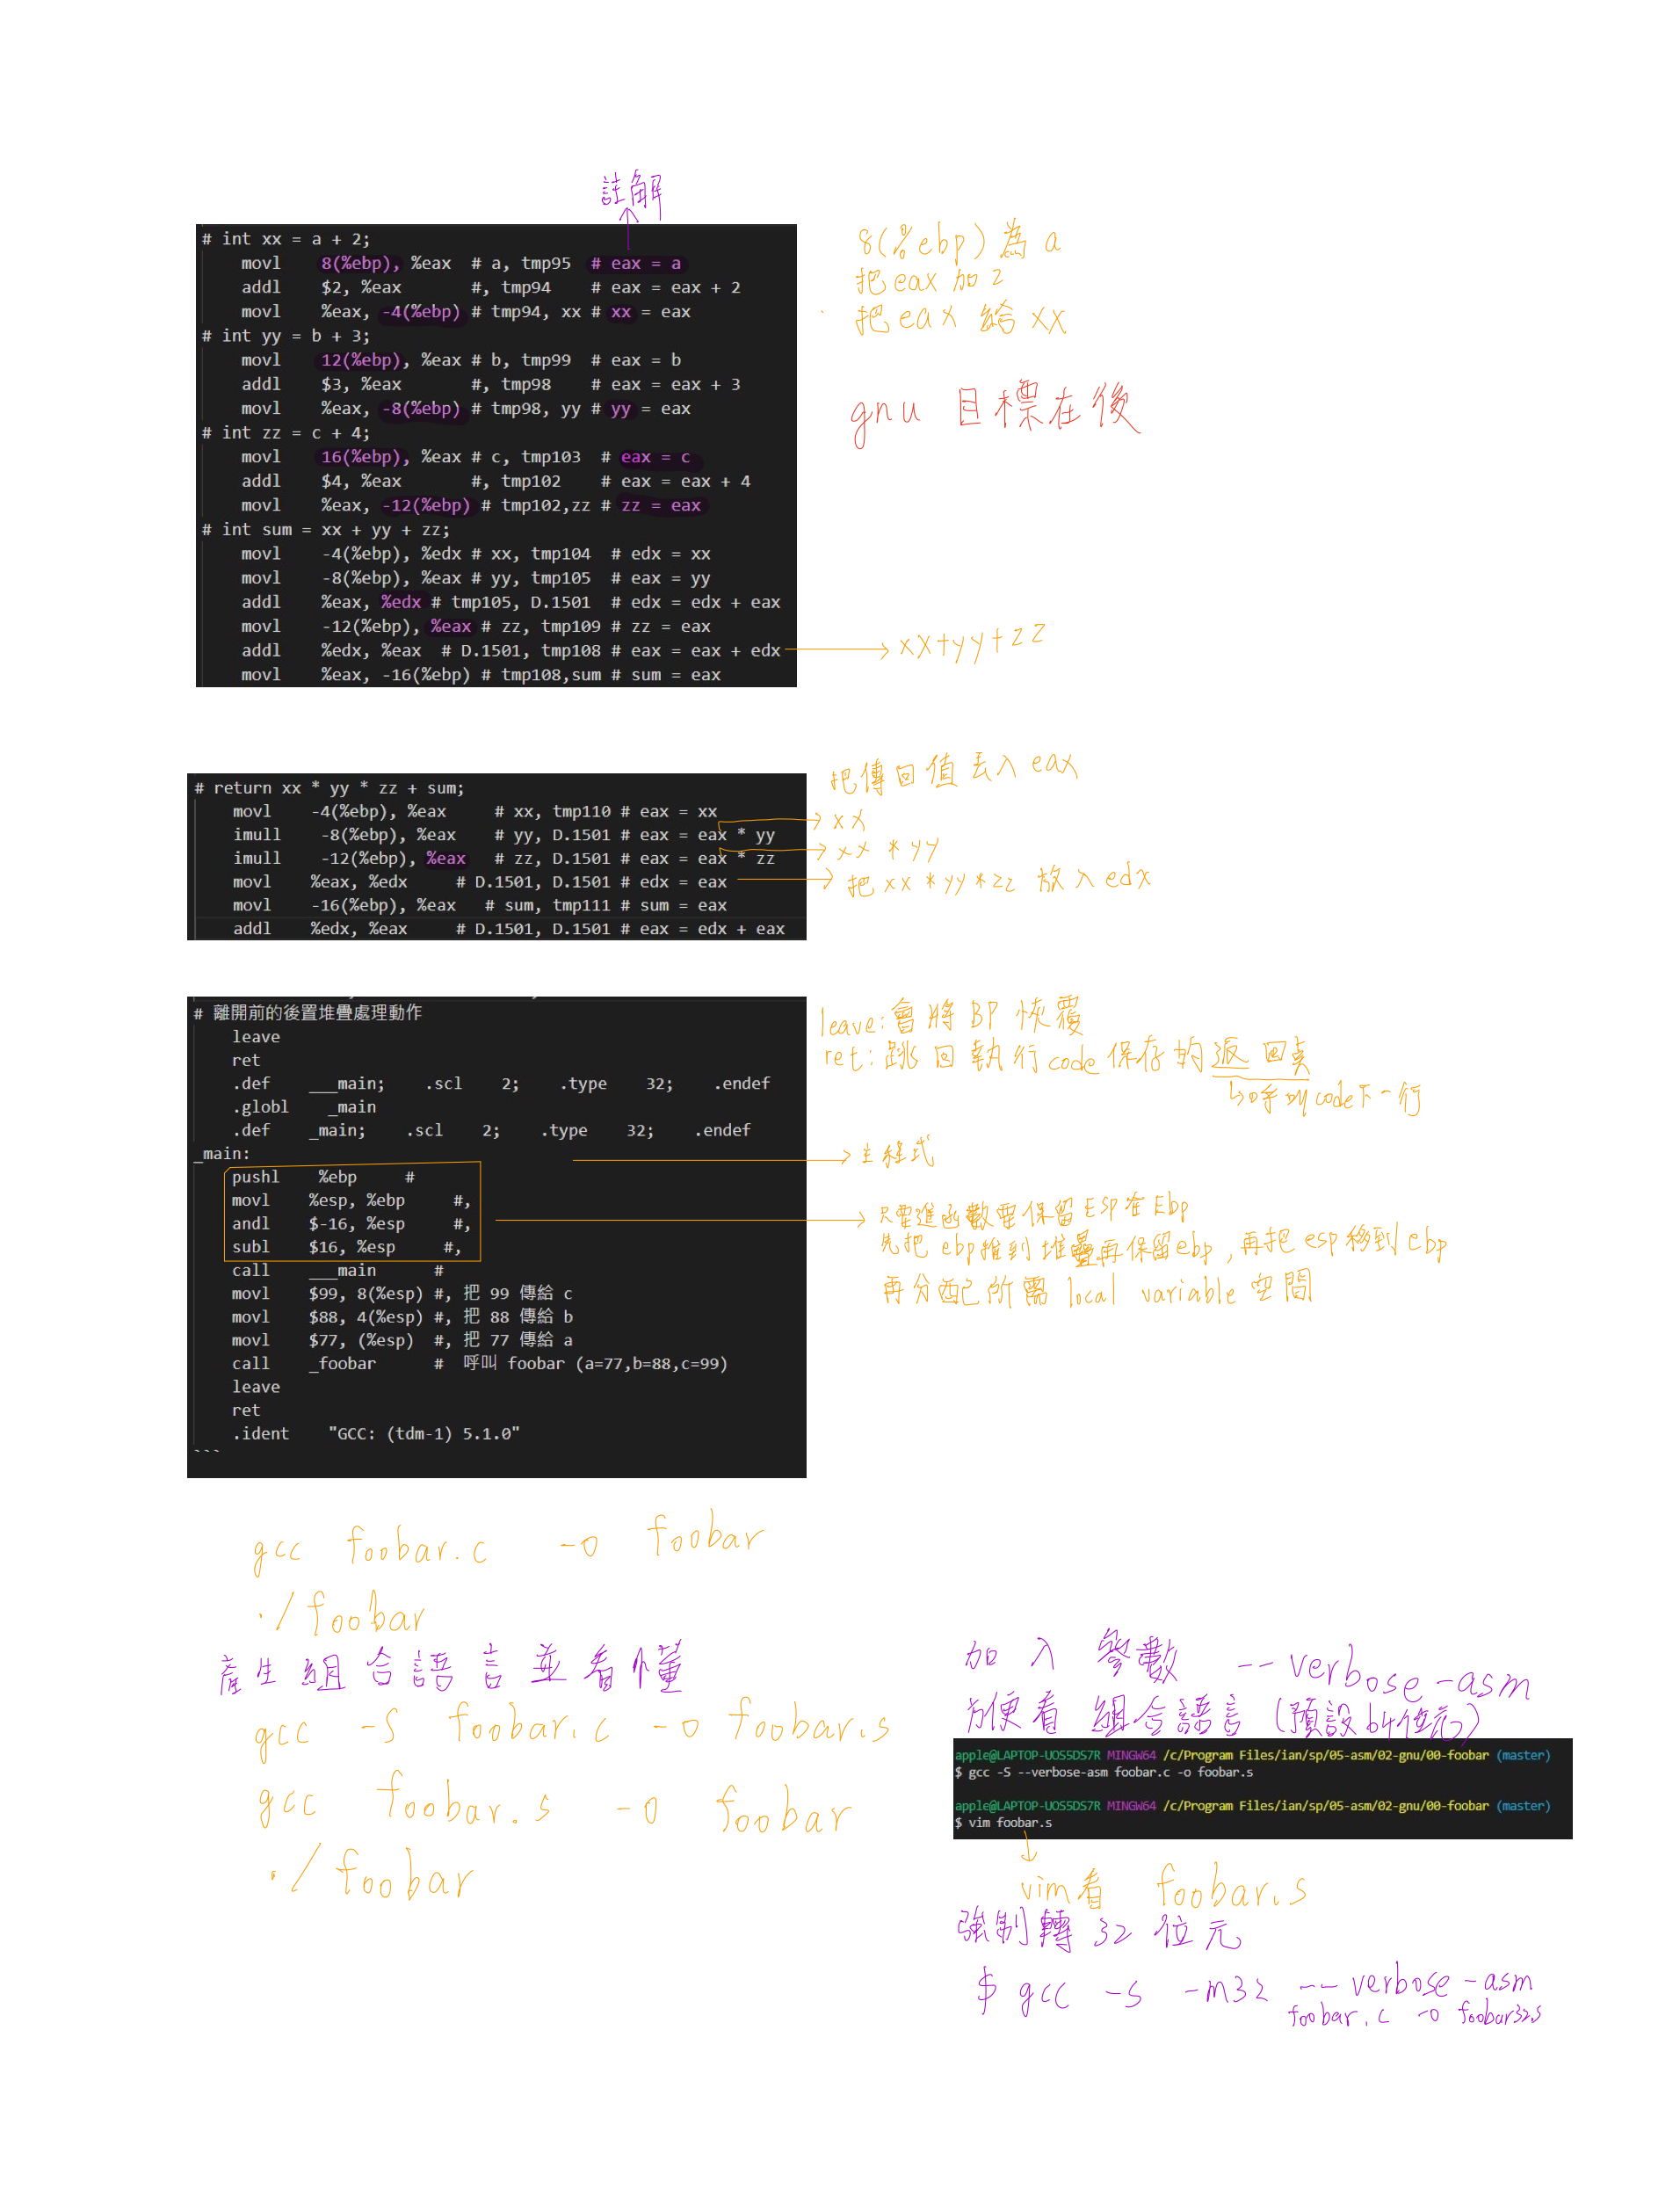 註解
# int xx = a + 2;
movl 8(%ebp), %eax # a, tmp95 # eax = a
addl $2, %eax #, tmp94 # eax = eax + 2
movl %eax, -4(%ebp) # tmp94, xx # xx = eax
# int yy = b + 3;
movl 12(%ebp), %eax # b, tmp99 # eax = b
addl $3, %eax #, tmp98 # eax = eax + 3
movl %eax, -8(%ebp) # tmp98, yy # yy = eax
# int zz = c + 4;
movl 16(%ebp), %eax # c, tmp103 # eax = c
addl $4, %eax #, tmp102 # eax = eax + 4
movl %eax, -12(%ebp) # tmp102,zz # zz = eax
# int sum = xx + yy + zz;
movl -4(%ebp), %edx # xx, tmp104 # edx = xx
movl -8(%ebp), %eax # yy, tmp105 # eax = yy
addl %eax, %edx # tmp105, D.1501 # edx = edx + eax
movl -12(%ebp), %eax # zz, tmp109 # zz = eax
addl %edx, %eax # D.1501, tmp108 # eax = eax + edx
movl %eax, -16(%ebp) # tmp108,sum # sum = eax
8(%ebp)為 a
把eax 加 2
把eax 給 xx
gnu 目標在後
xx+yy+zz
# return xx * yy * zz + sum;
movl -4(%ebp), %eax # xx, tmp110 # eax = xx
imull -8(%ebp), %eax # yy, D.1501 # eax = eax * yy
imull -12(%ebp), %eax # zz, D.1501 # eax = eax * zz
movl %eax, %edx # D.1501, D.1501 # edx = eax
movl -16(%ebp), %eax # sum, tmp111 # sum = eax
addl %edx, %eax # D.1501, D.1501 # eax = edx + eax
把傳回值丟入 eax
xx
xx * yy
把 xx * yy * zz 放入 edx
# 離開前的後置堆疊處理動作
leave
ret
.def ___main; .scl 2; .type 32; .endef
.globl _main
.def _main; .scl 2; .type 32; .endef
_main:
pushl %ebp #
movl %esp, %ebp #,
andl $-16, %esp #,
subl $16, %esp #,
call ___main #
movl $99, 8(%esp) #, 把 99 傳給 c
movl $88, 4(%esp) #, 把 88 傳給 b
movl $77, (%esp) #, 把 77 傳給 a
call _foobar # 呼叫 foobar (a=77,b=88,c=99)
leave
ret
.ident "GCC: (tdm-1) 5.1.0"
```
leave:會將 BP 恢覆
ret:跳回執行code保存的返回点
↳呼叫code下一行
主程式
只要進函數要保留ESP在Ebp
先把 ebp推到堆疊再保留ebp,再把esp移到ebp
再分配所需 local variable 空間
gcc foobar.c -o foobar
./foobar
產生組合語言並看懂
gcc -S foobar.c -o foobar.s
gcc foobar.s -o foobar
./foobar
加入參數 --verbose-asm
方便看 組合語言 (預設64位元)
apple@LAPTOP-UOS5DS7R MINGW64 /c/Program Files/ian/sp/05-asm/02-gnu/00-foobar (master)
$ gcc -S --verbose-asm foobar.c -o foobar.s
apple@LAPTOP-UOS5DS7R MINGW64 /c/Program Files/ian/sp/05-asm/02-gnu/00-foobar (master)
$ vim foobar.s
vim看 foobar.s
強制轉 32 位元
$ gcc -S -m32 --verbose-asm
foobar.c -o foobar32.s